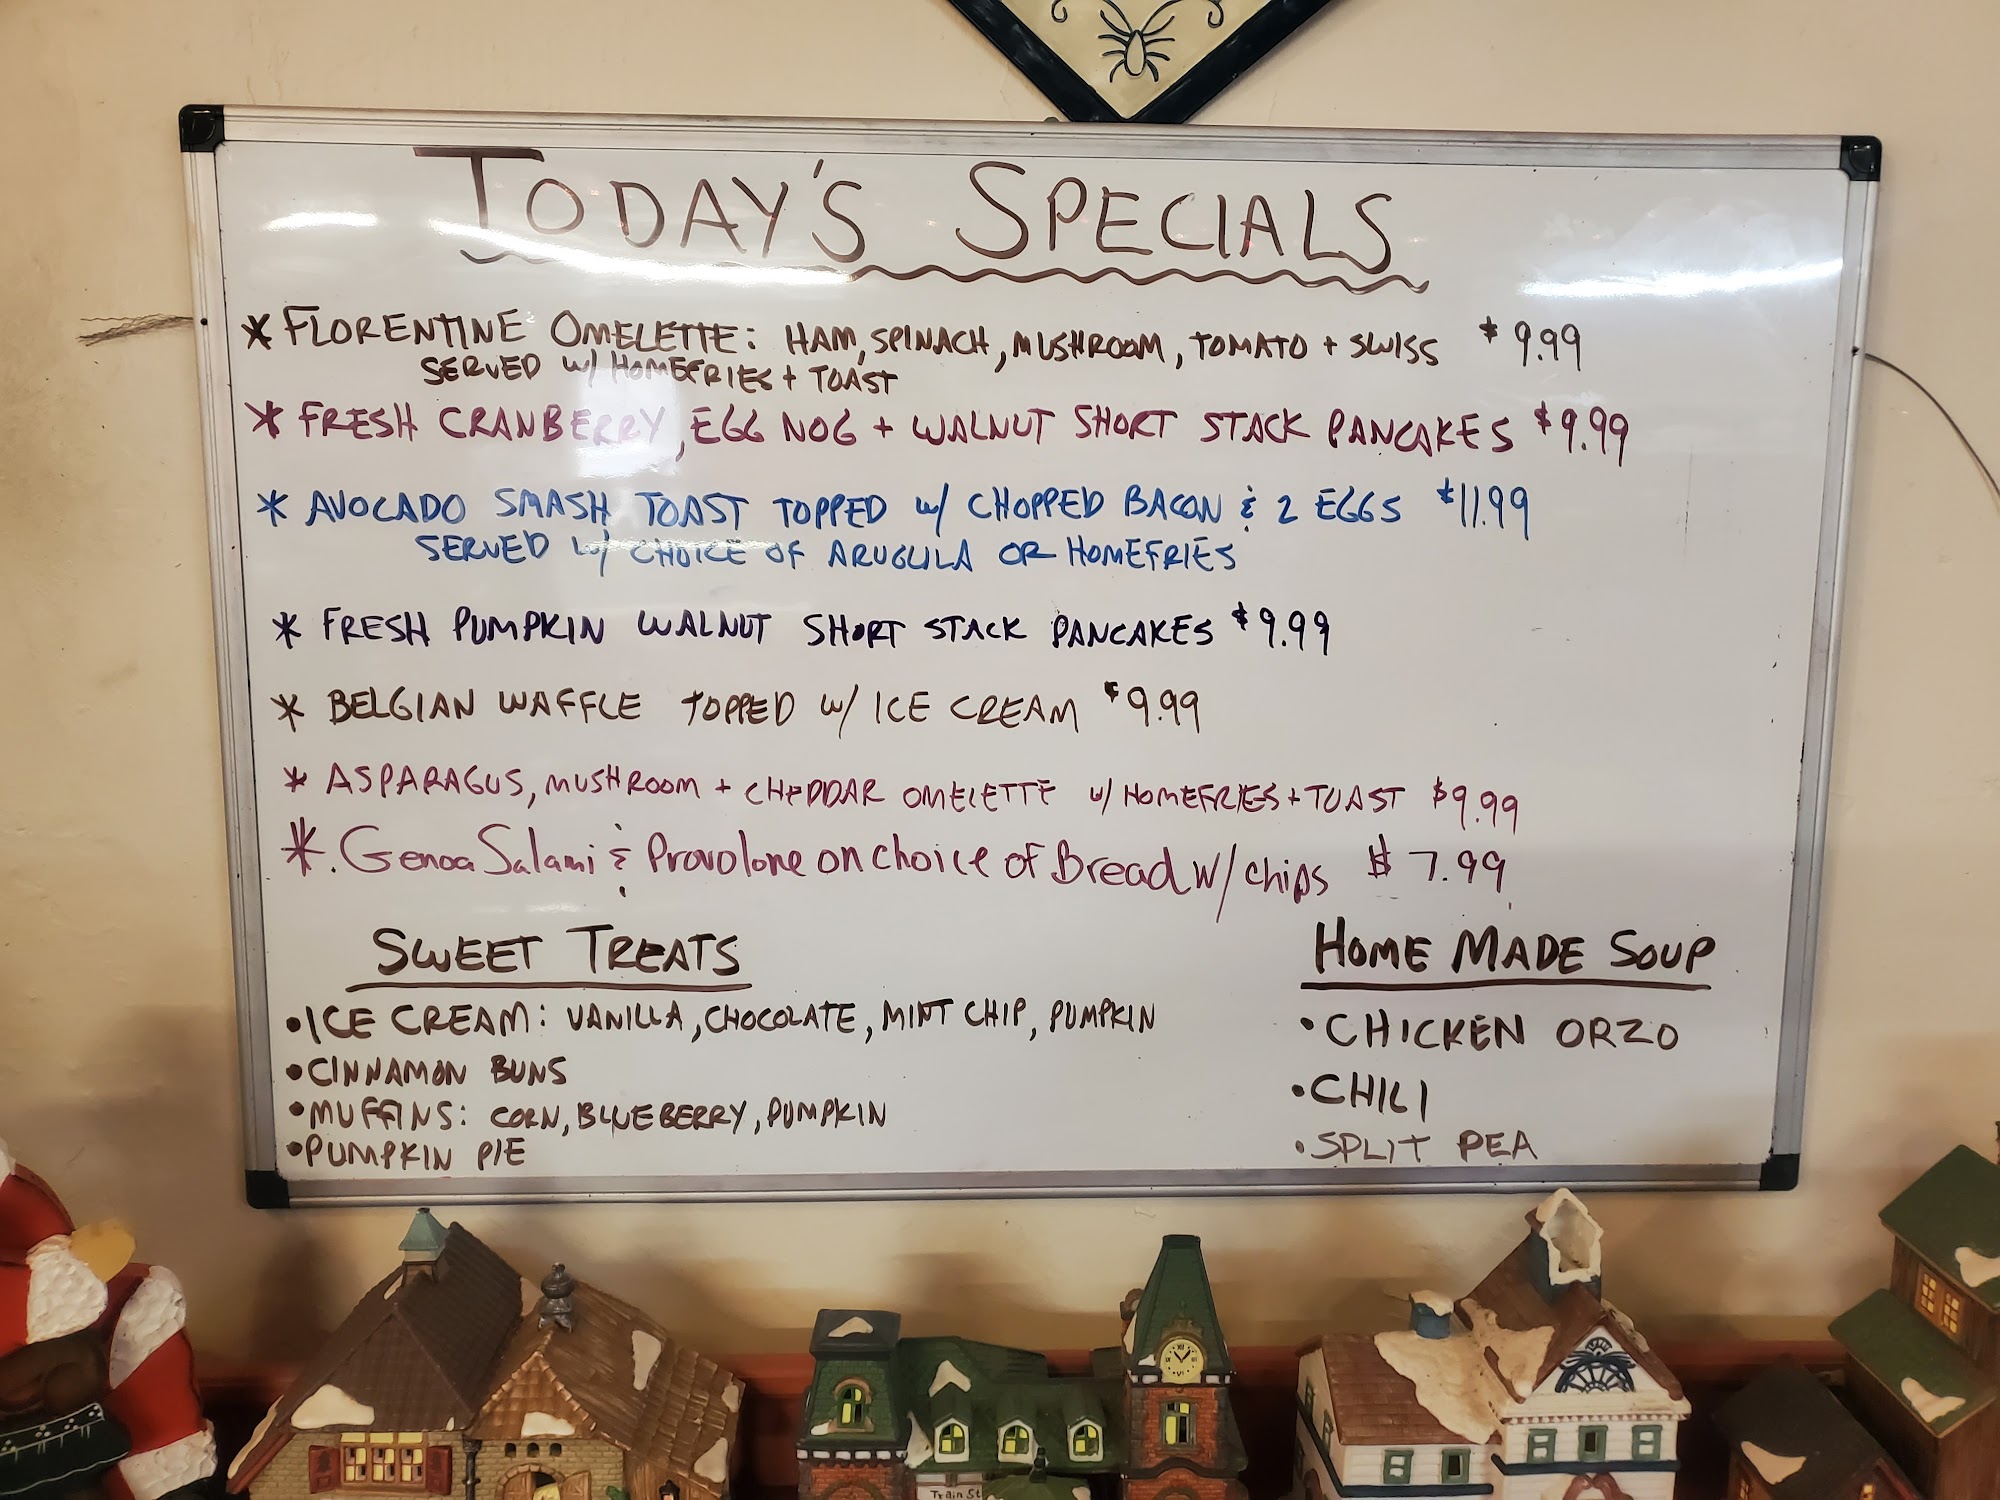 TODAY'S SPECIALS
* FLORENTINE OMELETTE: HAM, SPINACH, MUSHROOM, TOMATO + SWISS $9.99
SERVED W/ HOMEFRIES + TOAST
* FRESH CRANBERRY, EGG NOG + WALNUT SHORT STACK PANCAKES $9.99
* AVOCADO SMASH TOAST TOPPED W/ CHOPPED BACON & 2 EGGS $11.99
SERVED W/ CHOICE OF ARUGULA OR HOMEFRIES
* FRESH PUMPKIN WALNUT SHORT STACK PANCAKES $9.99
* BELGIAN WAFFLE TOPPED W/ ICE CREAM $9.99
* ASPARAGUS, MUSHROOM + CHEDDAR OMELETTE W/ HOMEFRIES + TOAST $9.99
*. Genoa Salami & Provolone on choice of Bread W/ chips $7.99
SWEET TREATS
• ICE CREAM: VANILLA, CHOCOLATE, MINT CHIP, PUMPKIN
• CINNAMON BUNS
• MUFFINS: CORN, BLUEBERRY, PUMPKIN
• PUMPKIN PIE
HOME MADE SOUP
• CHICKEN ORZO
• CHILI
• SPLIT PEA
Train St